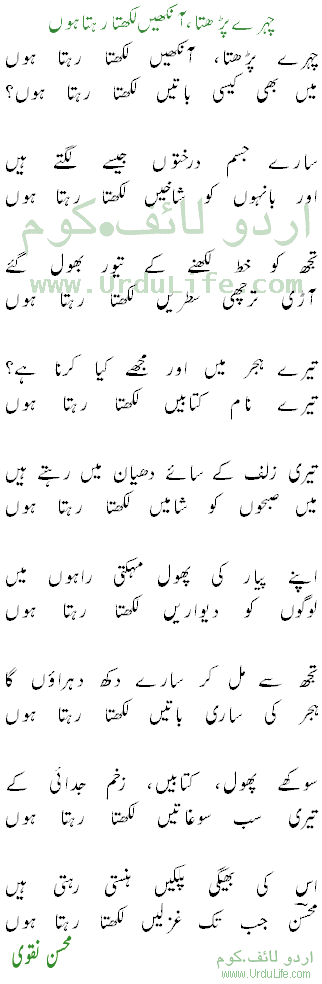 چہرے پڑھتا، آنکھیں لکھتا رہتا ہوں
چہرے پڑھتا، آنکھیں لکھتا رہتا ہوں
میں بھی کیسی باتیں لکھتا رہتا ہوں؟
سارے جسم درختوں جیسے لگتے ہیں
اور بانہوں کو شاخیں لکھتا رہتا ہوں
اردو لائف.کوم
تجھ کو خط لکھنے کے تیور بھول گئے
www.UrduLife.com
آڑی ترچھی سطریں لکھتا رہتا ہوں
تیرے ہجر میں اور مجھے کیا کرنا ہے؟
تیرے نام کتابیں لکھتا رہتا ہوں
تیری زلف کے سائے دھیان میں رہتے ہیں
میں صبحوں کو شامیں لکھتا رہتا ہوں
اپنے پیار کی پھول مہکتی راہوں میں
لوگوں کو دیواریں لکھتا رہتا ہوں
تجھ سے مل کر سارے دکھ دہراؤں گا
ہجر کی ساری باتیں لکھتا رہتا ہوں
سوکھے پھول، کتابیں، زخم جدائی کے
تیری سب سوغاتیں لکھتا رہتا ہوں
اس کی بھیگی پلکیں ہنستی رہتی ہیں
محسنؔ جب تک غزلیں لکھتا رہتا ہوں
محسن نقوی
اردو لائف.کوم
www.UrduLife.com